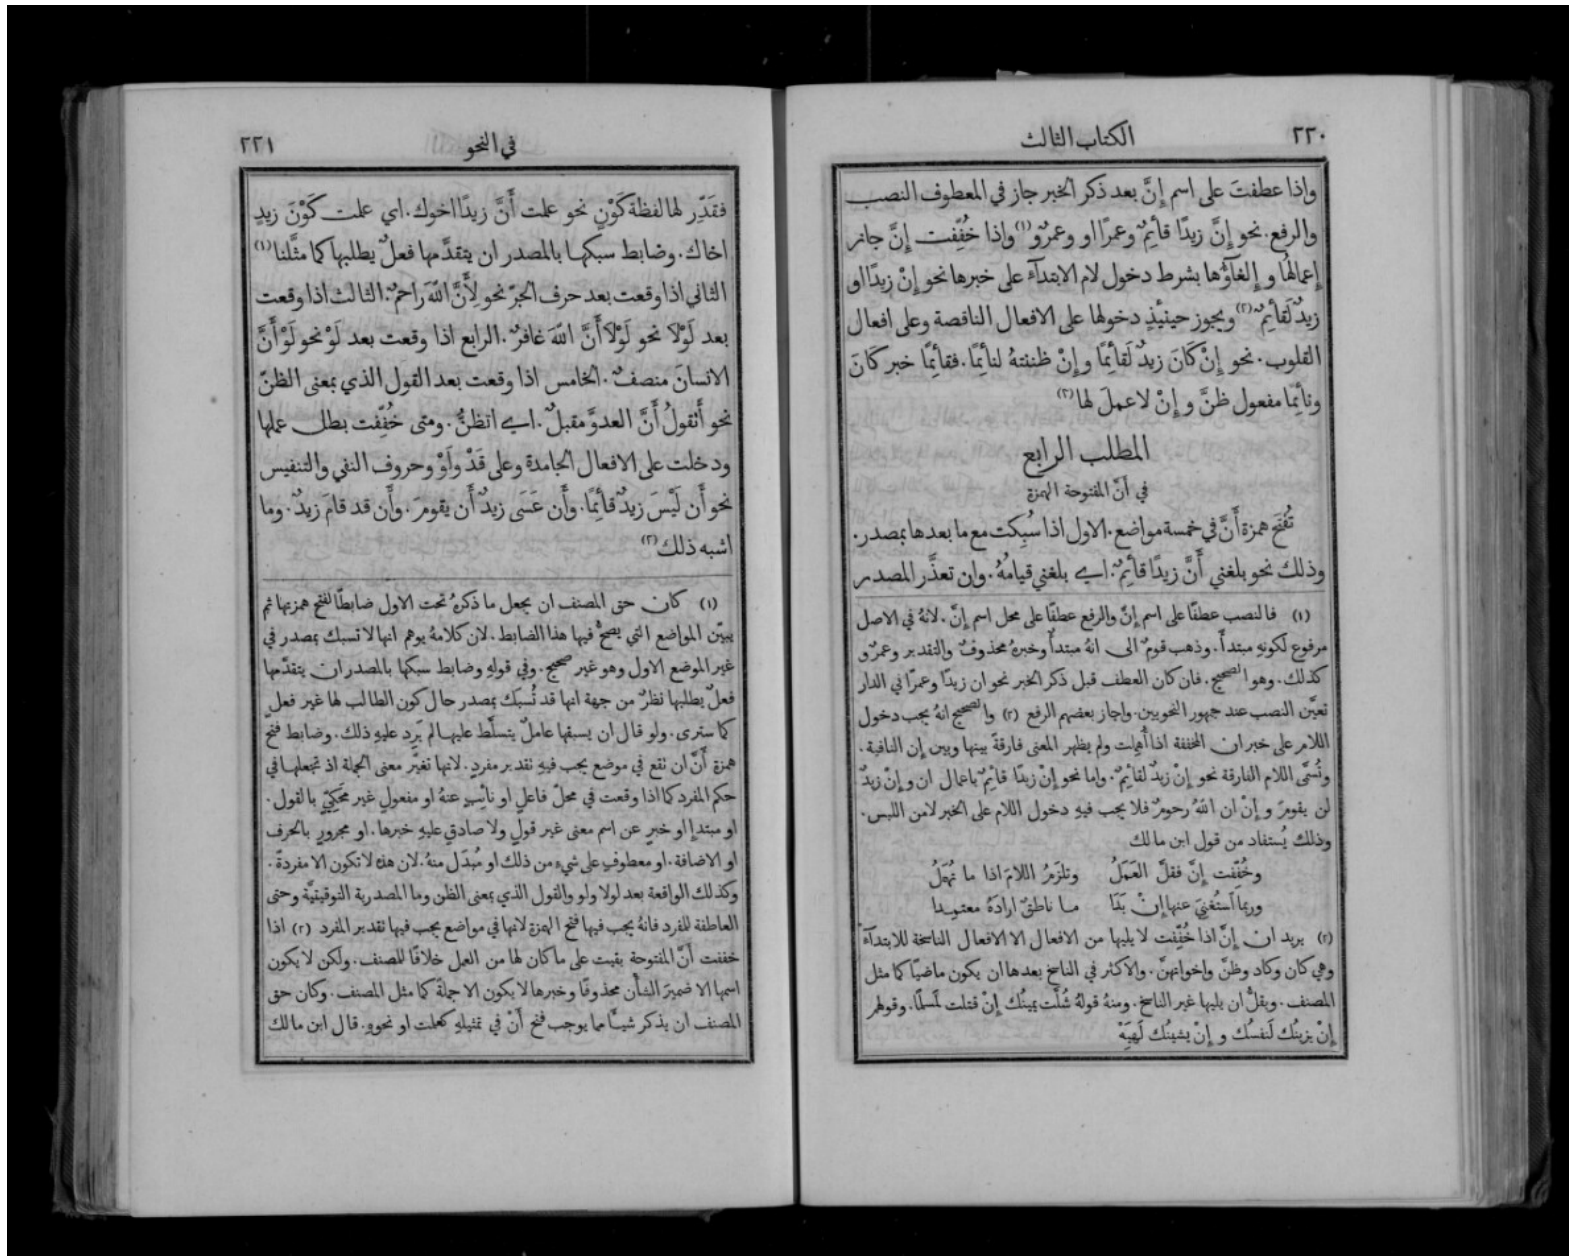 ٢٢٠
الكتاب الثالث
واذا عطفتَ على اسم إِنَّ بعد ذكر الخبر جاز في المعطوف النصب
والرفع. نحو إِنَّ زيدًا قائِمٌ وعمرًا او وعمرٌو (١) واذا خُفِّفت إِنَّ جاز
إِعمالهُا و إِلغآؤُها بشرط دخول لام الابتدآء على خبرها نحو إِنْ زيدًا او
زيدٌ لَقائِمٌ (٢) ويجوز حينئِذٍ دخولها على الافعال الناقصة وعلى افعال
القلوب. نحو إِنْ كَانَ زيدٌ لَقائِمًا و إِنْ ظننتهُ لنائِمًا. فقائِمًا خبر كَانَ
ونائِمًا مفعول ظنَّ و إِنْ لا عملَ لها (٣)
المطلب الرابع
في أنّ المفتوحة الهمزة
تُفتَح همزة أَنَّ في خمسة مواضع. الاول اذا سُبِكت مع ما بعدها بمصدر.
وذلك نحو بلغني أَنَّ زيدًا قائِمٌ. اي بلغني قيامهُ. وان تعذَّر المصدر
(١) فالنصب عطفًا على اسم إنّ والرفع عطفًا على محل اسم إنّ. لانهُ في الاصل
مرفوع لكونهِ مبتدأً. وذهب قومٌ الى انهُ مبتدأٌ وخبرهُ محذوفٌ والتقدير وعمرٌو
كذلك. وهو الصحيح. فان كان العطف قبل ذكر الخبر نحو ان زيدًا وعمرًا في الدار
تعيَّن النصب عند جمهور النحويين. واجاز بعضهم الرفع (٢) والصحيح انهُ يجب دخول
اللام على خبر ان المخففة اذا أُهملت ولم يظهر المعنى فارقةً بينها وبين إن النافية.
وتُسمَّى اللام الفارقة نحو إِنْ زيدٌ لقائِمٌ. واما نحو إِنْ زيدًا قائِمٌ باعمال ان و إِنْ زيدٌ
لن يقومَ و إِنْ ان اللهُ رحومٌ فلا يجب فيهِ دخول اللام على الخبر لامن اللبس.
وذلك يُستفاد من قول ابن مالك
وخُفِّفت إِنَّ فقلَّ العَمَلُ وتلزَمُ اللامَ اذا ما تُهمَلُ
وربما اَستُغنيَ عنها إِنْ بَدَا ما ناطقٌ ارادَهُ معتمِدا
(٣) يريد ان إِنَّ اذا خُفِّفت لا يليها من الافعال الا الافعال الناسخة للابتدآء
وهي كان وكاد وظنَّ واخواتهنَّ. والاكثر في الناسخ بعدها ان يكون ماضيًا كما مثل
المصنف. ويقلُّ ان يليها غير الناسخ. ومنهُ قولهُ شُلَّت يمينُك إِنْ قتلت لَمسلمًا. وقولهم
إِنْ يزينُك لَنفسُك و إِنْ يشينُك لَهِيَهْ
في النحو
٢٢١
فقَدِّر لها لفظة كَوْنٍ نحو علمت أَنَّ زيدًا اخوك. اي علمت كَوْنَ زيدٍ
اخاك. وضابط سبكها بالمصدر ان يتقدَّمها فعلٌ يطلبها كما مثَّلنا (١)
الثاني اذا وقعت بعد حرف الجرّ نحو لِأَنَّ اللهَ راحمٌ. الثالث اذا وقعت
بعد لَوْلَا نحو لَوْلَا أَنَّ اللهَ غافرٌ. الرابع اذا وقعت بعد لَوْ نحو لَوْ أَنَّ
الانسانَ منصفٌ. الخامس اذا وقعت بعد القول الذي بمعنى الظنّ
نحو أَتقولُ أَنَّ العدوَّ مقبلٌ. اي اتظنُّ. ومتى خُفِّفت بطل عملها
ودخلت على الافعال الجامدة وعلى قَدْ ولَوْ وحروف النفي والتنفيس
نحو أَن لَيْسَ زيدٌ قائِمًا. وأَن عَسَى زيدٌ أَن يقومَ. وأَن قد قامَ زيدٌ. وما
اشبه ذلك (٢)
(١) كان حق المصنف ان يجعل ما ذكرهُ تحت الاول ضابطًا لفتح همزتها ثم
يبيّن المواضع التي يصحُّ فيها هذا الضابط. لان كلامهُ يوهم انها لا تسبك بمصدر في
غير الموضع الاول وهو غير صحيح. وفي قولهِ وضابط سبكها بالمصدر ان يتقدّمها
فعلٌ يطلبها نظرٌ من جهة انها قد تُسبك بمصدر حال كون الطالب لها غير فعلٍ
كما سترى. ولو قال ان يسبقها عاملٌ يتسلَّط عليها لم يَرِد عليهِ ذلك. وضابط فتح
همزة أَنَّ ان تقع في موضع يجب فيهِ تقدير مفردٍ. لانها تغيّر معنى الجملة اذ تجعلها في
حكم المفرد كما اذا وقعت في محلّ فاعلٍ او نائِبٍ عنهُ او مفعولٍ غير محكيّ بالقول.
او مبتدإٍ او خبرٍ عن اسم معنى غير قولٍ ولا صادقٍ عليهِ خبرها. او مجرورٍ بالحرف
او الاضافة. او معطوفٍ على شيءٍ من ذلك او مُبدَل منهُ. لان هذه لا تكون الا مفردةً.
وكذلك الواقعة بعد لولا ولو والقول الذي بمعنى الظن وما المصدرية التوقيتيَّة وحتى
العاطفة للمفرد فانهُ يجب فيها فتح الهمزة لانها في مواضع يجب فيها تقدير المفرد (٢) اذا
خففت أَنَّ المفتوحة بقيت على ما كان لها من العمل خلافًا للمصنف. ولكن لا يكون
اسمها الا ضميرَ الشأن محذوفًا وخبرها لا يكون الا جملةً كما مثل المصنف. وكان حق
المصنف ان يذكر شيئًا مما يوجب فتح أَنْ في تمثيلهِ كعلمت او نحوهِ. قال ابن مالك